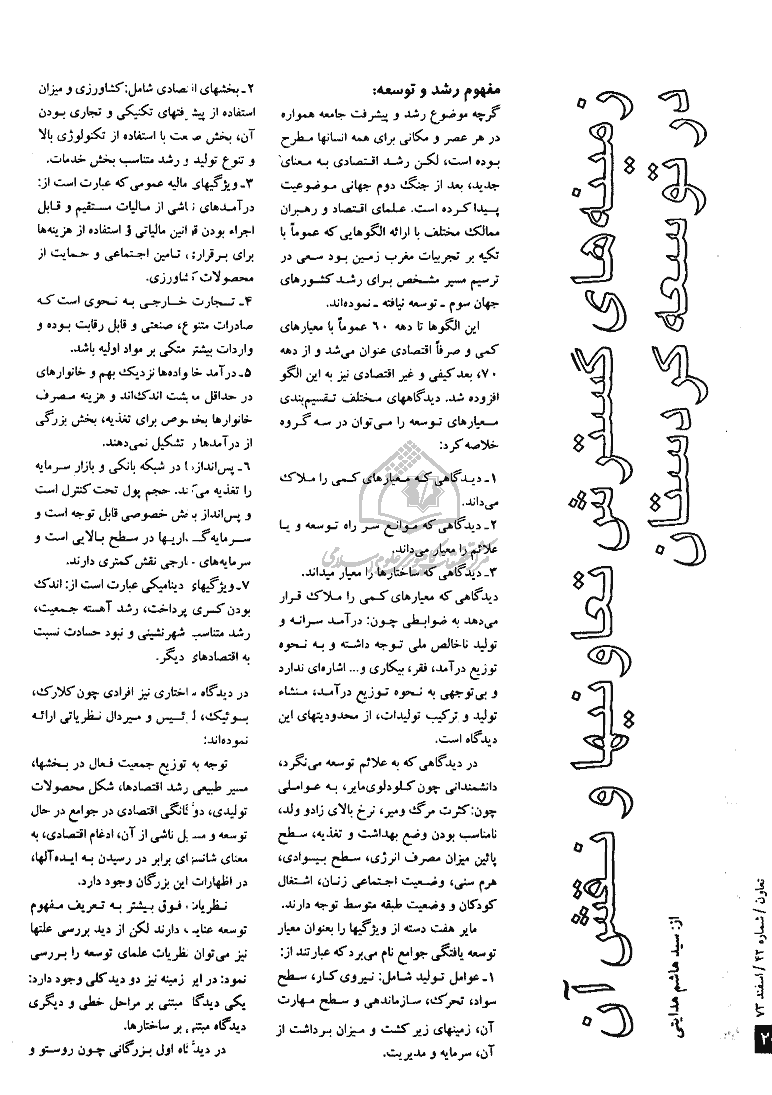 زمینه‌های گسترش تعاونیها و نقش آن
در توسعه کردستان
از: سید هاشم هدایتی
مفهوم رشد و توسعه:
گرچه موضوع رشد و پیشرفت جامعه همواره
در هر عصر و مکانی برای همه انسانها مطرح
بوده است، لکن رشد اقتصادی به معنای
جدید، بعد از جنگ دوم جهانی موضوعیت
پیدا کرده است. علمای اقتصاد و رهبران
ممالک مختلف با ارائه الگوهایی که عموماً با
تکیه بر تجربیات مغرب زمین بود سعی در
ترسیم مسیر مشخص برای رشد کشورهای
جهان سوم ـ توسعه نیافته ـ نموده‌اند.
این الگوها تا دهه ۶۰ عموماً با معیارهای
کمی و صرفاً اقتصادی عنوان می‌شد و از دهه
۷۰، بعد کیفی و غیر اقتصادی نیز به این الگو
افزوده شد. دیدگاههای مختلف تقسیم‌بندی
معیارهای توسعه را می‌توان در سه گروه
خلاصه کرد:
۱ـ دیدگاهی که معیارهای کمی را ملاک
می‌داند.
۲ـ دیدگاهی که موانع سر راه توسعه و یا
علائم را معیار می‌داند.
۳ـ دیدگاهی که ساختارها را معیار میداند.
دیدگاهی که معیارهای کمی را ملاک قرار
می‌دهد به ضوابطی چون: درآمد سرانه و
تولید ناخالص ملی توجه داشته و به نحوه
توزیع درآمد، فقر، بیکاری و... اشاره‌ای ندارد
و بی‌توجهی به نحوه توزیع درآمد، منشاء
تولید و ترکیب تولیدات، از محدودیتهای این
دیدگاه است.
در دیدگاهی که به علائم توسعه می‌نگرد،
دانشمندانی چون کلودلوی‌مایر، به عواملی
چون: کثرت مرگ ومیر، نرخ بالای زادو ولد،
نامناسب بودن وضع بهداشت و تغذیه، سطح
پائین میزان مصرف انرژی، سطح بیسوادی،
هرم سنی، وضعیت اجتماعی زنان، اشتغال
کودکان و وضعیت طبقه متوسط توجه دارند.
مایر هفت دسته از ویژگیها را بعنوان معیار
توسعه یافتگی جوامع نام می‌برد که عبارتند از:
۱ـ عوامل تولید شامل: نیروی کار، سطح
سواد، تحرک، سازماندهی و سطح مهارت
آن، زمینهای زیر کشت و میزان برداشت از
آن، سرمایه و مدیریت.
۲ـ بخشهای اقتصادی شامل: کشاورزی و میزان
استفاده از پیشرفتهای تکنیکی و تجاری بودن
آن، بخش صنعت با استفاده از تکنولوژی بالا
و تنوع تولید و رشد متناسب بخش خدمات.
۳ـ ویژگیهای مالیه عمومی که عبارت است از:
درآمدهای ناشی از مالیات مستقیم و قابل
اجراء بودن قوانین مالیاتی و استفاده از هزینه‌ها
برای برقراری تامین اجتماعی و حمایت از
محصولات کشاورزی.
۴ـ تجارت خارجی به نحوی است که
صادرات متنوع، صنعتی و قابل رقابت بوده و
واردات بیشتر متکی بر مواد اولیه باشد.
۵ـ درآمد خانواده‌ها نزدیک بهم و خانوارهای
در حداقل معیشت اندک‌اند و هزینه مصرف
خانوارها بخصوص برای تغذیه، بخش بزرگی
از درآمدها را تشکیل نمی‌دهند.
۶ـ پس‌اندازها در شبکه بانکی و بازار سرمایه
را تغذیه می‌کند. حجم پول تحت کنترل است
و پس‌انداز بخش خصوصی قابل توجه است و
سرمایه‌گذاریها در سطح بالایی است و
سرمایه‌های خارجی نقش کمتری دارند.
۷ـ ویژگیهای دینامیکی عبارت است از: اندک
بودن کسری پرداخت، رشد آهسته جمعیت،
رشد متناسب شهرنشینی و نبود حسادت نسبت
به اقتصادهای دیگر.
در دیدگاه ساختاری نیز افرادی چون کلارک،
بوئیک، لوئیس و میردال نظریاتی ارائه
نموده‌اند:
توجه به توزیع جمعیت فعال در بخشها،
مسیر طبیعی رشد اقتصادها، شکل محصولات
تولیدی، دوگانگی اقتصادی در جوامع در حال
توسعه و مسایل ناشی از آن، ادغام اقتصادی، به
معنای شانسهای برابر در رسیدن به ایده‌آلها،
در اظهارات این بزرگان وجود دارد.
نظریات فوق بیشتر به تعریف مفهوم
توسعه عنایت دارند لکن از دید بررسی علتها
نیز می‌توان نظریات علمای توسعه را بررسی
نمود: در این زمینه نیز دو دید کلی وجود دارد:
یکی دیدگاه مبتنی بر مراحل خطی و دیگری
دیدگاه مبتنی بر ساختارها.
در دیدگاه اول بزرگانی چون روستو و
تعاون / شماره ۴۲ / اسفند ۷۳